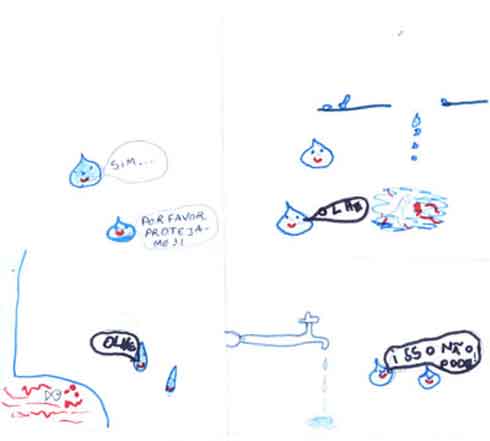 SIM...
POR FAVOR
PROTEJA-
ME!!
OLHA
OLHA
ISSO NÃO
PODE!